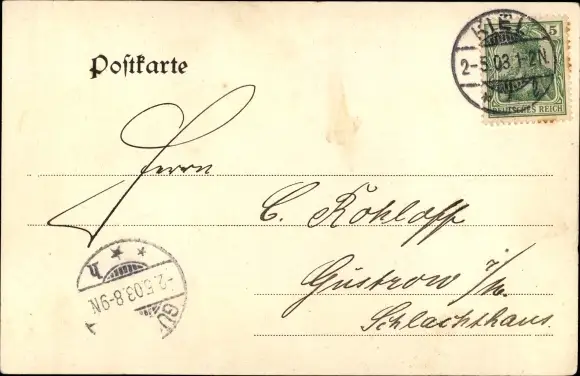 Postkarte
KIEL
2-5.03.1-2N
5
DEUTSCHES REICH
Herrn
C. Kohloff
Güstrow i/M.
Schlachthaus.
-2.5.03.8-9N